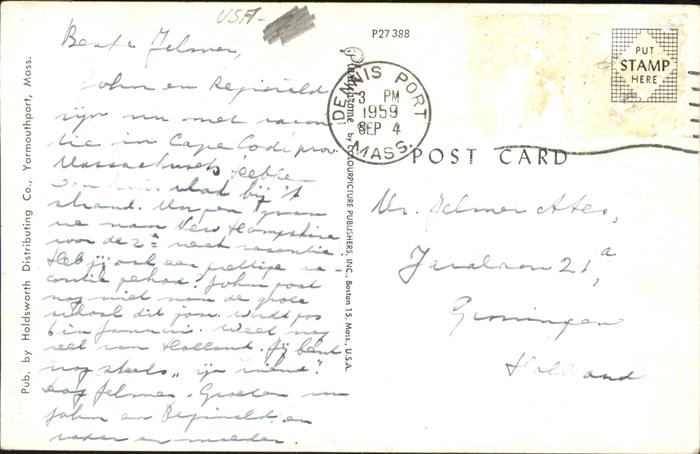 USA-
P27388
Beste Jelmer,
John en Reginald
zijn nu met vacan-
tie in Cape Cod prov.
Massachusets Hebben
een huis vlak bij 't
strand. Morgen gaan
we naar New Hampshire
voor de 2e week vacantie.
Heb jij ook een prettige va-
cantie gehad? John gaat
nog niet naar de grote
school dit jaar. Wordt pas
6 in Januari. Weet nog
veel van Holland. Jij bent
nog steeds "zijn vriend".
Dag Jelmer. Groeten van
John en Reginald en
vader en moeder.
Pub. by Holdsworth Distributing Co., Yarmouthport, Mass.
Plastichrome by COLOURPICTURE PUBLISHERS, INC., Boston 15, Mass., U.S.A.
DENNIS PORT
3 PM
1959
SEP 4
MASS.
PUT
STAMP
HERE
POST CARD
Mr. Jelmer Ates,
Javalaan 21a,
Groningen
Holland